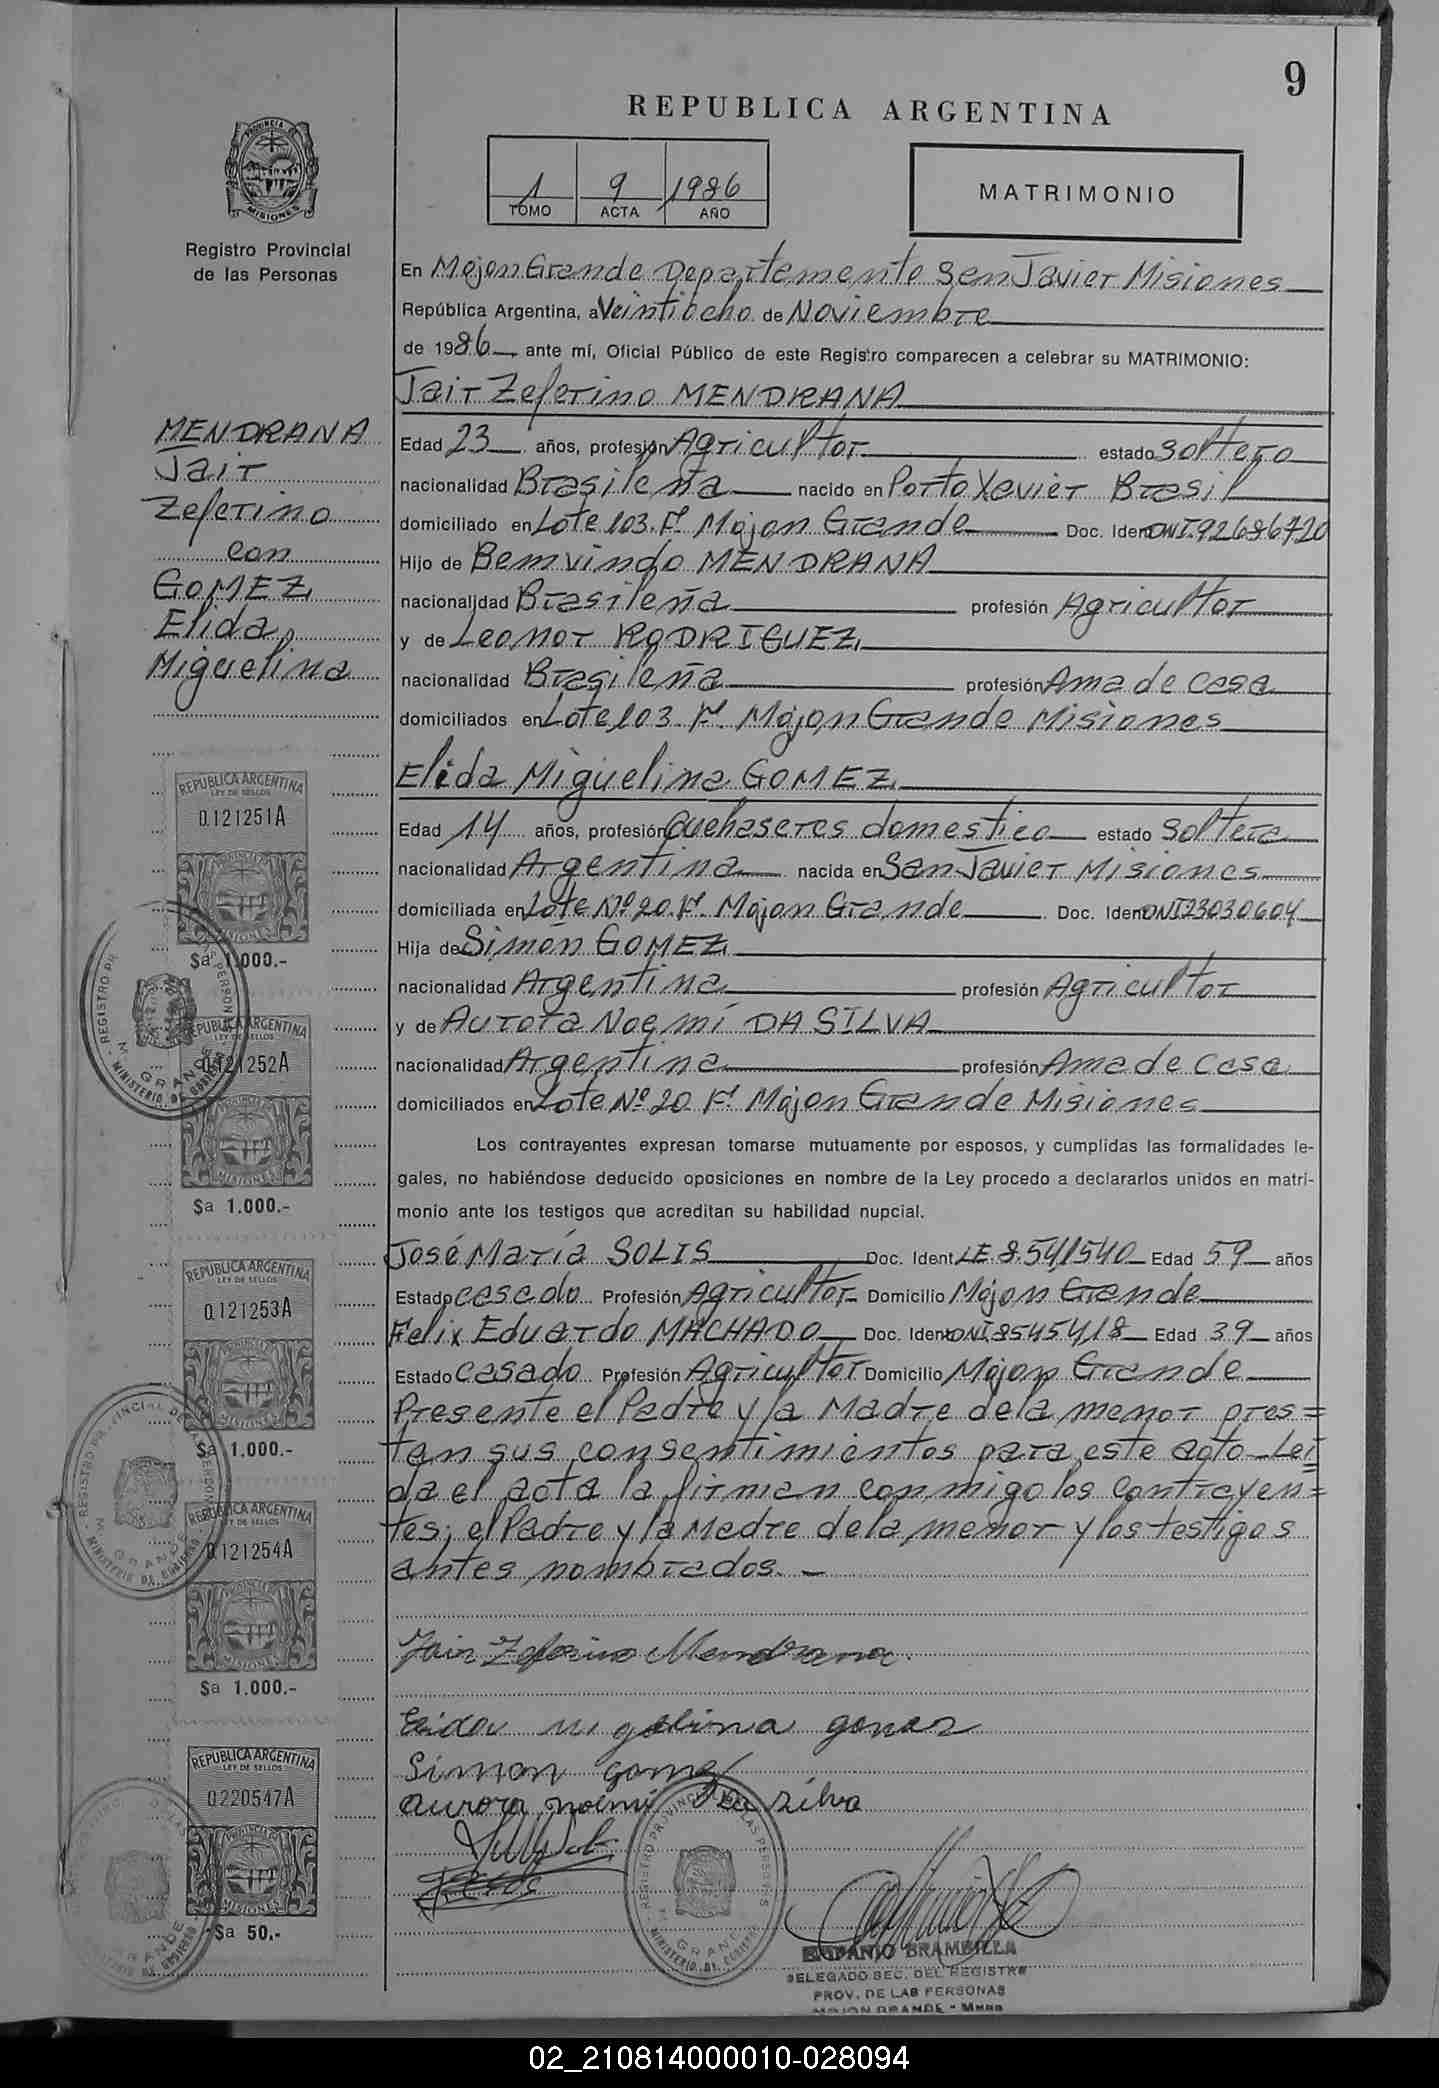 9
REPUBLICA ARGENTINA
1 9 1986
TOMO ACTA AÑO
MATRIMONIO
PROVINCIA DE
MISIONES
Registro Provincial
de las Personas
En Mojon Grande Departamento San Javier Misiones
República Argentina, a Veintiocho de Noviembre
de 1986 ante mí, Oficial Público de este Registro comparecen a celebrar su MATRIMONIO:
Jair Zeferino MENDRANA
Edad 23 años, profesión Agricultor estado soltero
nacionalidad Brasileña nacido en Porto Xavier Brasil
domiciliado en Lote 103. Fl. Mojon Grande Doc. Ident. DNI.92686720
Hijo de Bemvindo MENDRANA
nacionalidad Brasileña profesión Agricultor
y de Leonor RODRIGUEZ
nacionalidad Brasileña profesión Ama de casa
domiciliados en Lote 103. Fl. Mojon Grande Misiones
Elida Miguelina GOMEZ
Edad 14 años, profesión Quehaseres domestico estado soltera
nacionalidad Argentina nacida en San Javier Misiones
domiciliada en Lote Nº 20. Fl. Mojon Grande Doc. Ident. DNI23030604
Hija de Simón GOMEZ
nacionalidad Argentina profesión Agricultor
y de Aurora Noemí DA SILVA
nacionalidad Argentina profesión Ama de casa
domiciliados en Lote Nº 20 Fl. Mojon Grande Misiones
Los contrayentes expresan tomarse mutuamente por esposos, y cumplidas las formalidades le-
gales, no habiéndose deducido oposiciones en nombre de la Ley procedo a declararlos unidos en matri-
monio ante los testigos que acreditan su habilidad nupcial.
José María SOLIS Doc. Ident. LE 8.541540 Edad 59 años
Estado casado Profesión Agricultor Domicilio Mojon Grande
Felix Eduardo MACHADO Doc. Ident. DNI.8545418 Edad 39 años
Estado casado Profesión Agricultor Domicilio Mojon Grande
Presente el Padre y la Madre de la menor pres=
tan sus consentimientos para este acto_Leí
da el acta la firman conmigo los contrayen=
tes; el Padre y la Madre de la menor y los testigos
antes nombrados._
Jair Zeferino Mendrana
Elida migelina gomez
Simon gomez
aurora noemi da silva
BRAMBILLA
DELEGADO SEC. DEL REGISTRO
PROV. DE LAS PERSONAS
MOJON GRANDE - Mnes
REGISTRO PROVINCIAL DE LAS PERSONAS
M. GRANDE
MINISTERIO DE GOBIERNO
MENDRANA
Jair
Zeferino
con
GOMEZ
Elida
Miguelina
REPUBLICA ARGENTINA
LEY DE SELLOS
0.121251A
PROVINCIA DE
MISIONES
$a 1.000.-
REPUBLICA ARGENTINA
LEY DE SELLOS
0.121252A
MISIONES
$a 1.000.-
REPUBLICA ARGENTINA
LEY DE SELLOS
0.121253A
$a 1.000.-
REPUBLICA ARGENTINA
LEY DE SELLOS
0.121254A
MISIONES
$a 1.000.-
REPUBLICA ARGENTINA
LEY DE SELLOS
0.220547A
PROVINCIA DE
MISIONES
$a 50.-
02_210814000010-028094